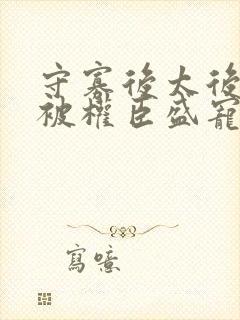 守寡後太後
被權臣盛寵
寫噫